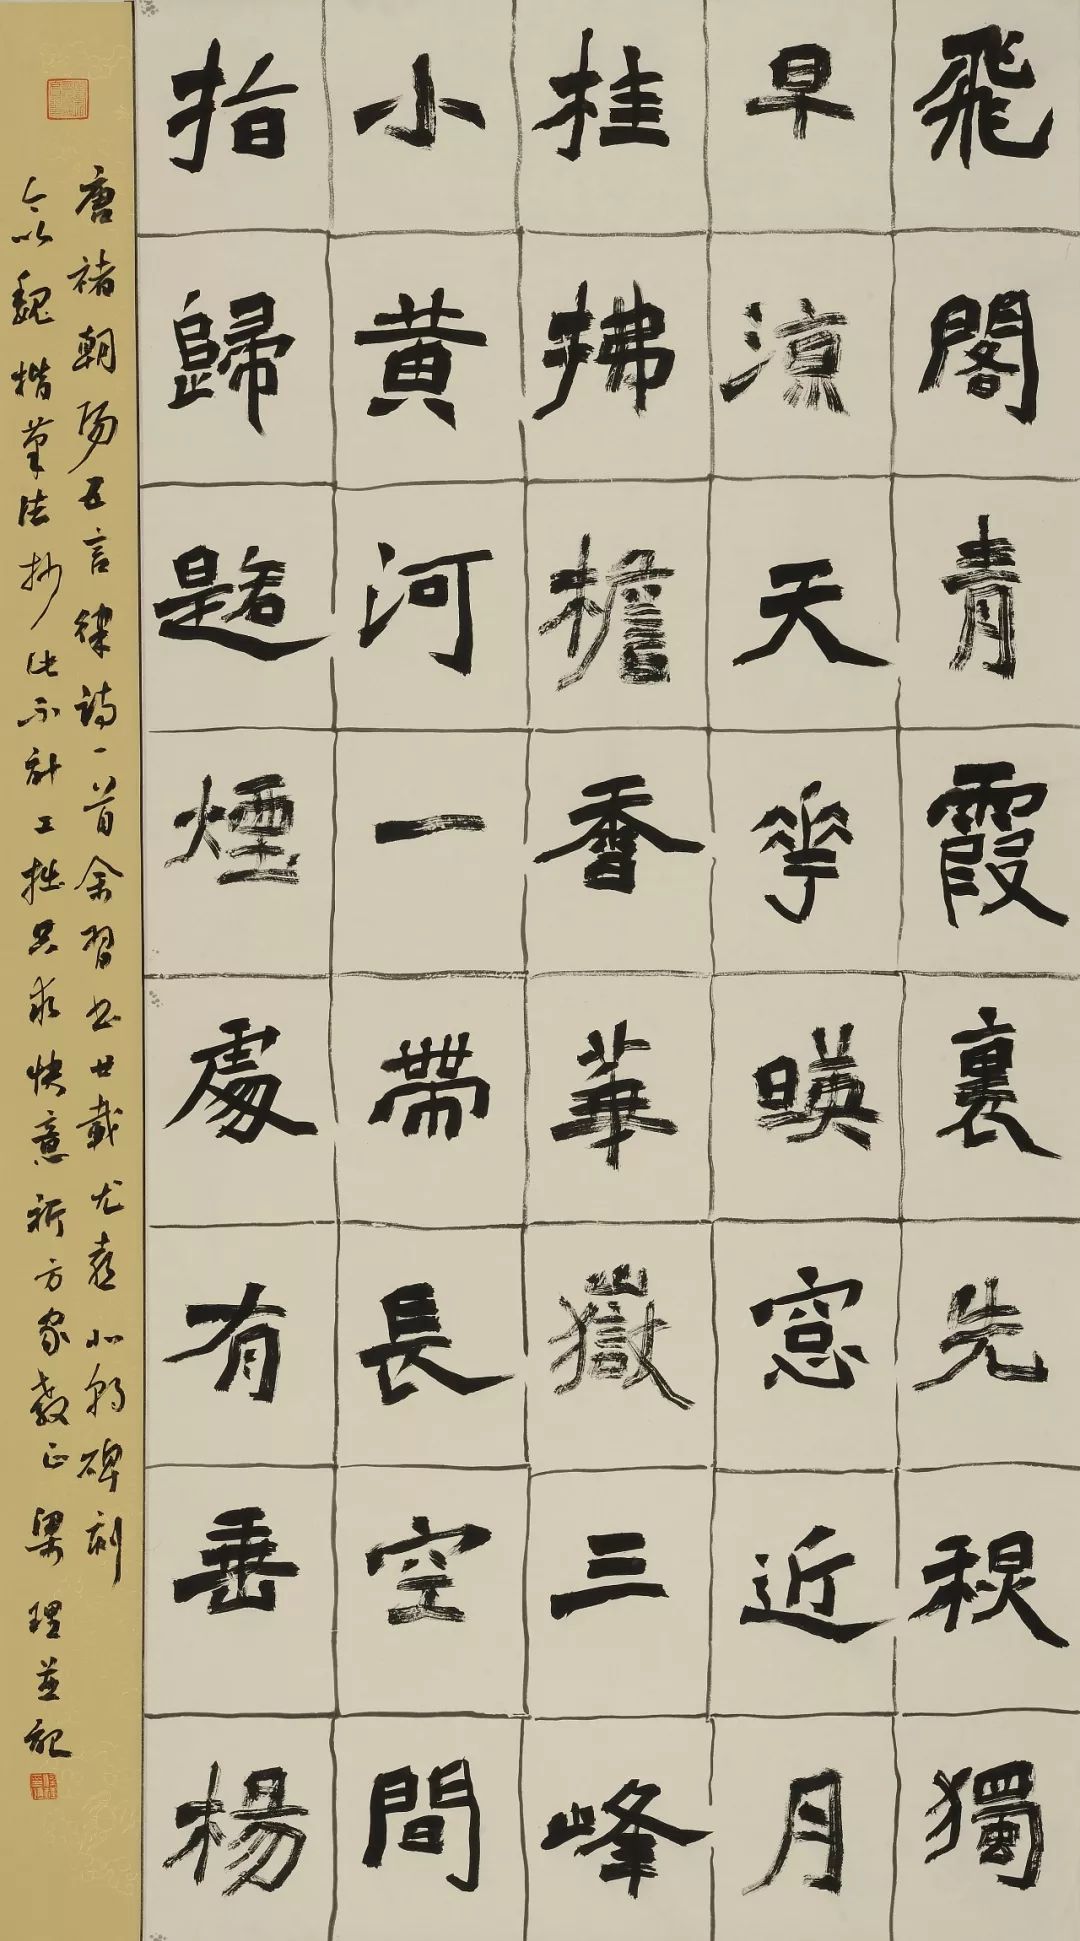 飛閣青霞裏先秋獨
早涼天花暎窓近月
桂拂檐香華嶽三峰
小黃河一帶長空間
指歸路煙處有垂楊
唐褚朝陽五言律詩一首余習書廿載尤喜北朝碑刻
今以魏楷筆法抄此不計工拙只求快意祈方家教正梁理並記